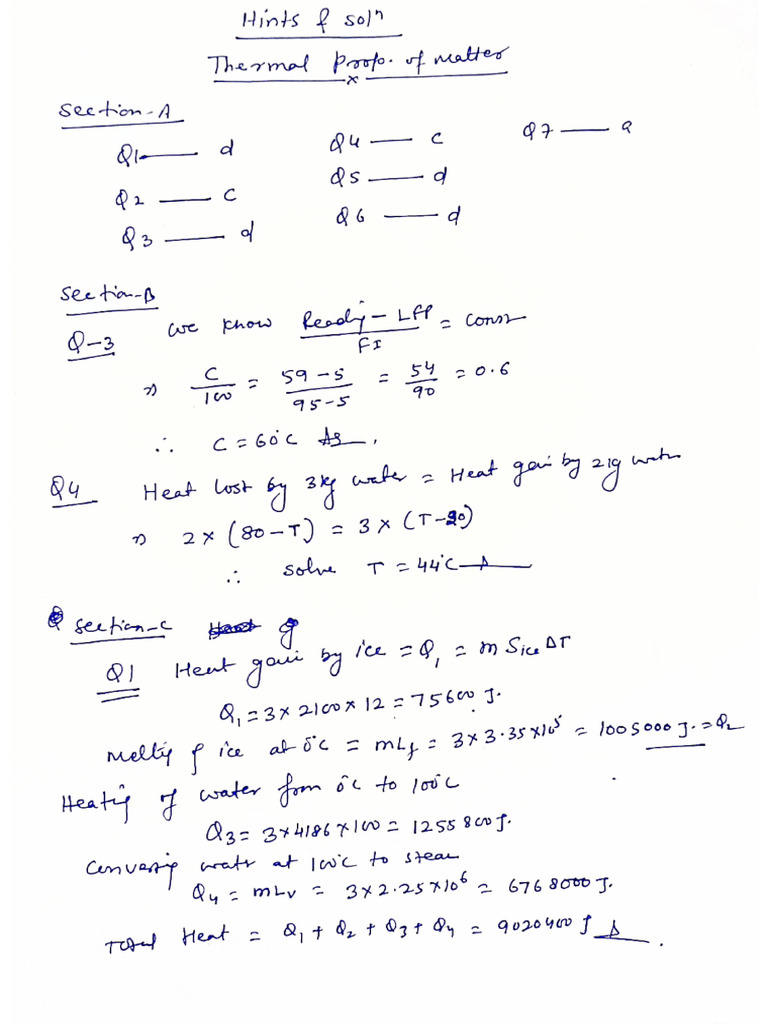 Hints & solⁿ
Thermal Prop. of matter
x
Section-A
Q1 — d Q4 — c Q7 — a
Q2 — C Q5 — d
Q3 — d Q6 — d
Section-B
Q-3 we know Readij - LFP / FI = const
⇒ C/100 = 59-5 / 95-5 = 54/90 = 0.6
∴ C = 60°C As,
Q4 Heat lost by 3kg water = Heat gai by 21g watr
⇒ 2 x (80-T) = 3 x (T-20)
∴ solve T = 44°C A
Section-C
Q1 Heat gain by ice = Q₁ = m Sice ΔT
Q₁ = 3 x 2100 x 12 = 75600 J.
Meltig of ice at 0°C = mLf = 3 x 3.35 x 10⁵ = 1005000 J. = Q₂
Heatig of water from 0°C to 100°C
Q₃ = 3 x 4186 x 100 = 1255800 J.
Conversig watr at 100°C to steam
Q₄ = mLv = 3 x 2.25 x 10⁶ = 6768000 J.
Total Heat = Q₁ + Q₂ + Q₃ + Q₄ = 9020400 J A.